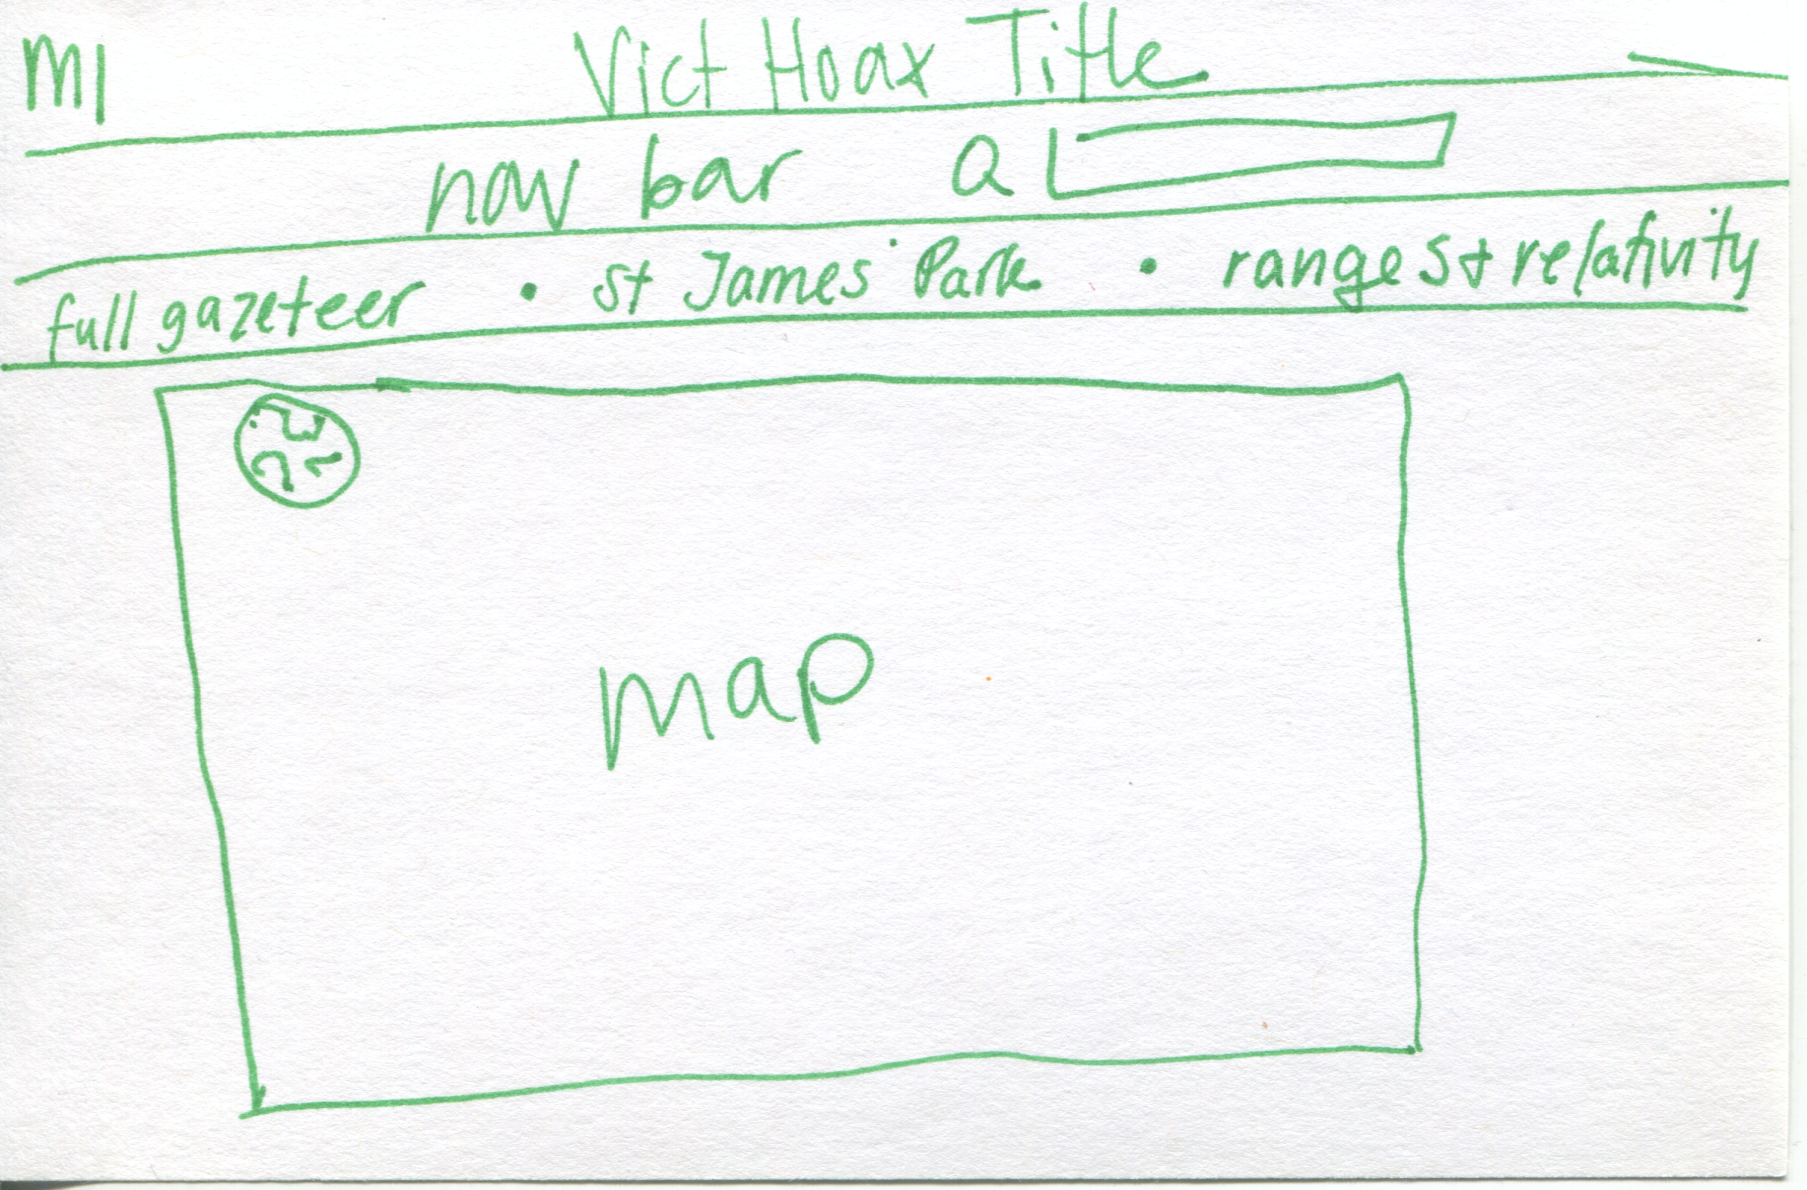 M1
Vict Hoax Title
nav bar Q
full gazeteer • St James' Park • range st relativity
map